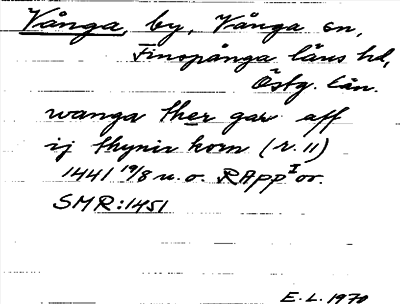 Vånga, by, Vånga sn,
Finspånga läns hd,
Östg. län.
wanga ther gaw aff
ij thynir korn (r. 11)
1441 19/8 u. o. RApp I or.
SMR: 1451
E. L. 1970